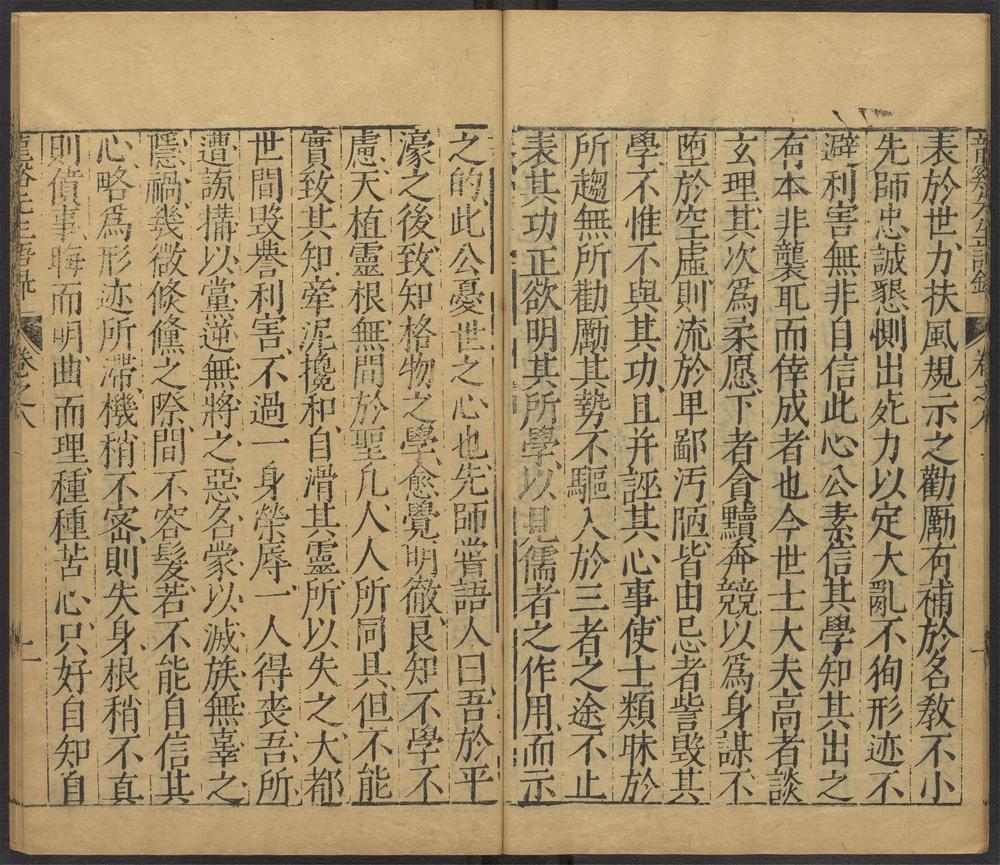 龍谿先生語錄 卷之八 一
表於世力扶風規示之勸勵有補於名敎不小
先師忠誠懇惻出死力以定大亂不徇形迹不
避利害無非自信此心公素信其學知其出之
有本非襲取而倖成者也今世士大夫高者談
玄理其次爲柔愿下者貪黷奔競以爲身謀不
墮於空虛則流於卑鄙汚陋皆由忌者訾毀其
學不惟不與其功且并誣其心事使士類昧於
所趨無所勸勵其勢不驅入於三者之途不止
表其功正欲明其所學以見儒者之作用而示
之的此公憂世之心也先師嘗語人曰吾於平
濠之後致知格物之學愈覺明徹良知不學不
慮天植靈根無間於聖凡人人所同具但不能
實致其知牽泥攙和自滑其靈所以失之大都
世間毀譽利害不過一身榮辱一人得喪吾所
遭訴搆以黨逆無將之惡名蒙以滅族無辜之
隱禍幾微倏儵之際間不容髮若不能自信其
心略爲形迹所滯機稍不密則失身根稍不真
則僨事晦而明曲而理種種苦心只好自知自
龍谿先生語錄 卷之八 二